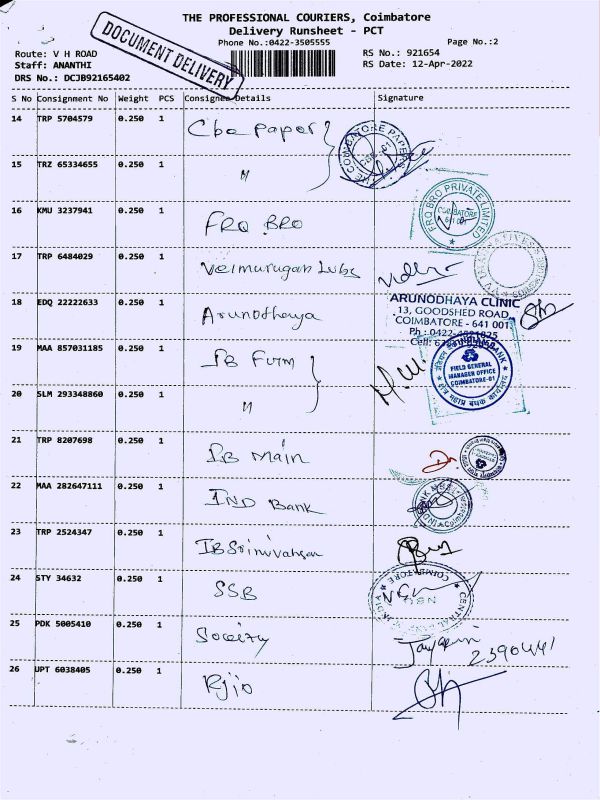 THE PROFESSIONAL COURIERS, Coimbatore
Delivery Runsheet - PCT
Phone No.:0422-3505555
Page No.:2
DOCUMENT DELIVERY
Route: V H ROAD
RS No.: 921654
Staff: ANANTHI
RS Date: 12-Apr-2022
DRS No.: DCJB92165402
S No Consignment No Weight PCS Consignee Details Signature
14 TRP 5704579 0.250 1 Cbe Paper
COIMBATORE PAPERS
15 TRZ 65334655 0.250 1 "
16 KMU 3237941 0.250 1 FRQ BRO
FRQ BRO PRIVATE LIMITED
COIMBATORE
17 TRP 6484029 0.250 1 Velmurugan Lubs
18 EDQ 22222633 0.250 1 Arunodhaya
ARUNODHAYA CLINIC
13, GOODSHED ROAD,
COIMBATORE - 641 001
Ph : 0422-
Cell:
19 MAA 857031185 0.250 1 IB Furm
INDIAN BANK
FIELD GENERAL
MANAGER OFFICE
COIMBATORE-01
20 SLM 293348860 0.250 1 "
21 TRP 8207698 0.250 1 IB Main
22 MAA 282647111 0.250 1 IND Bank
Coimbatore
23 TRP 2524347 0.250 1 IB Srinivahsan
24 STY 34632 0.250 1 SSB
COIMBATORE
CENTRAL
25 PDK 5005410 0.250 1 Society
2390441
26 UPT 6038405 0.250 1 Rjio